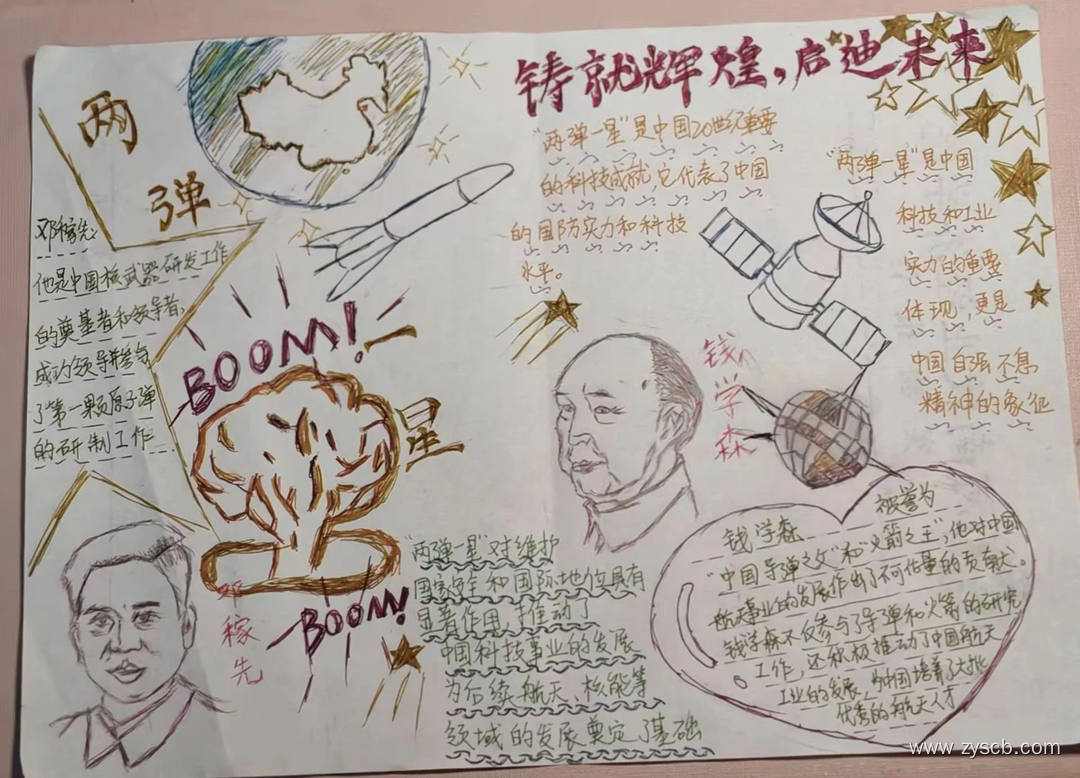 铸就辉煌，启迪未来
两
弹
一
星
邓稼先
他是中国核武器研发工作
的奠基者和领导者，
成功领导并参与
了第一颗原子弹
的研制工作
BOOM!
BOOM!
邓
稼
先
"两弹一星"是中国20世纪重要
的科技成就，它代表了中国
的国防实力和科技
水平。
"两弹一星"是中国
科技和工业
实力的重要
体现，更是
中国自强不息
精神的象征
钱
学
森
"两弹一星"对维护
国家安全和国际地位具有
显著作用，推动了
中国科技事业的发展
为后续航天、核能等
领域的发展奠定了基础
钱学森 被誉为
"中国导弹之父"和"火箭之王"，他对中国
航天事业的发展作出了不可估量的贡献。
钱学森不仅参与了导弹和火箭的研究
工作，还积极推动了中国航天
工业的发展，为中国培养了大批
优秀的航天人才
www.zyscb.com